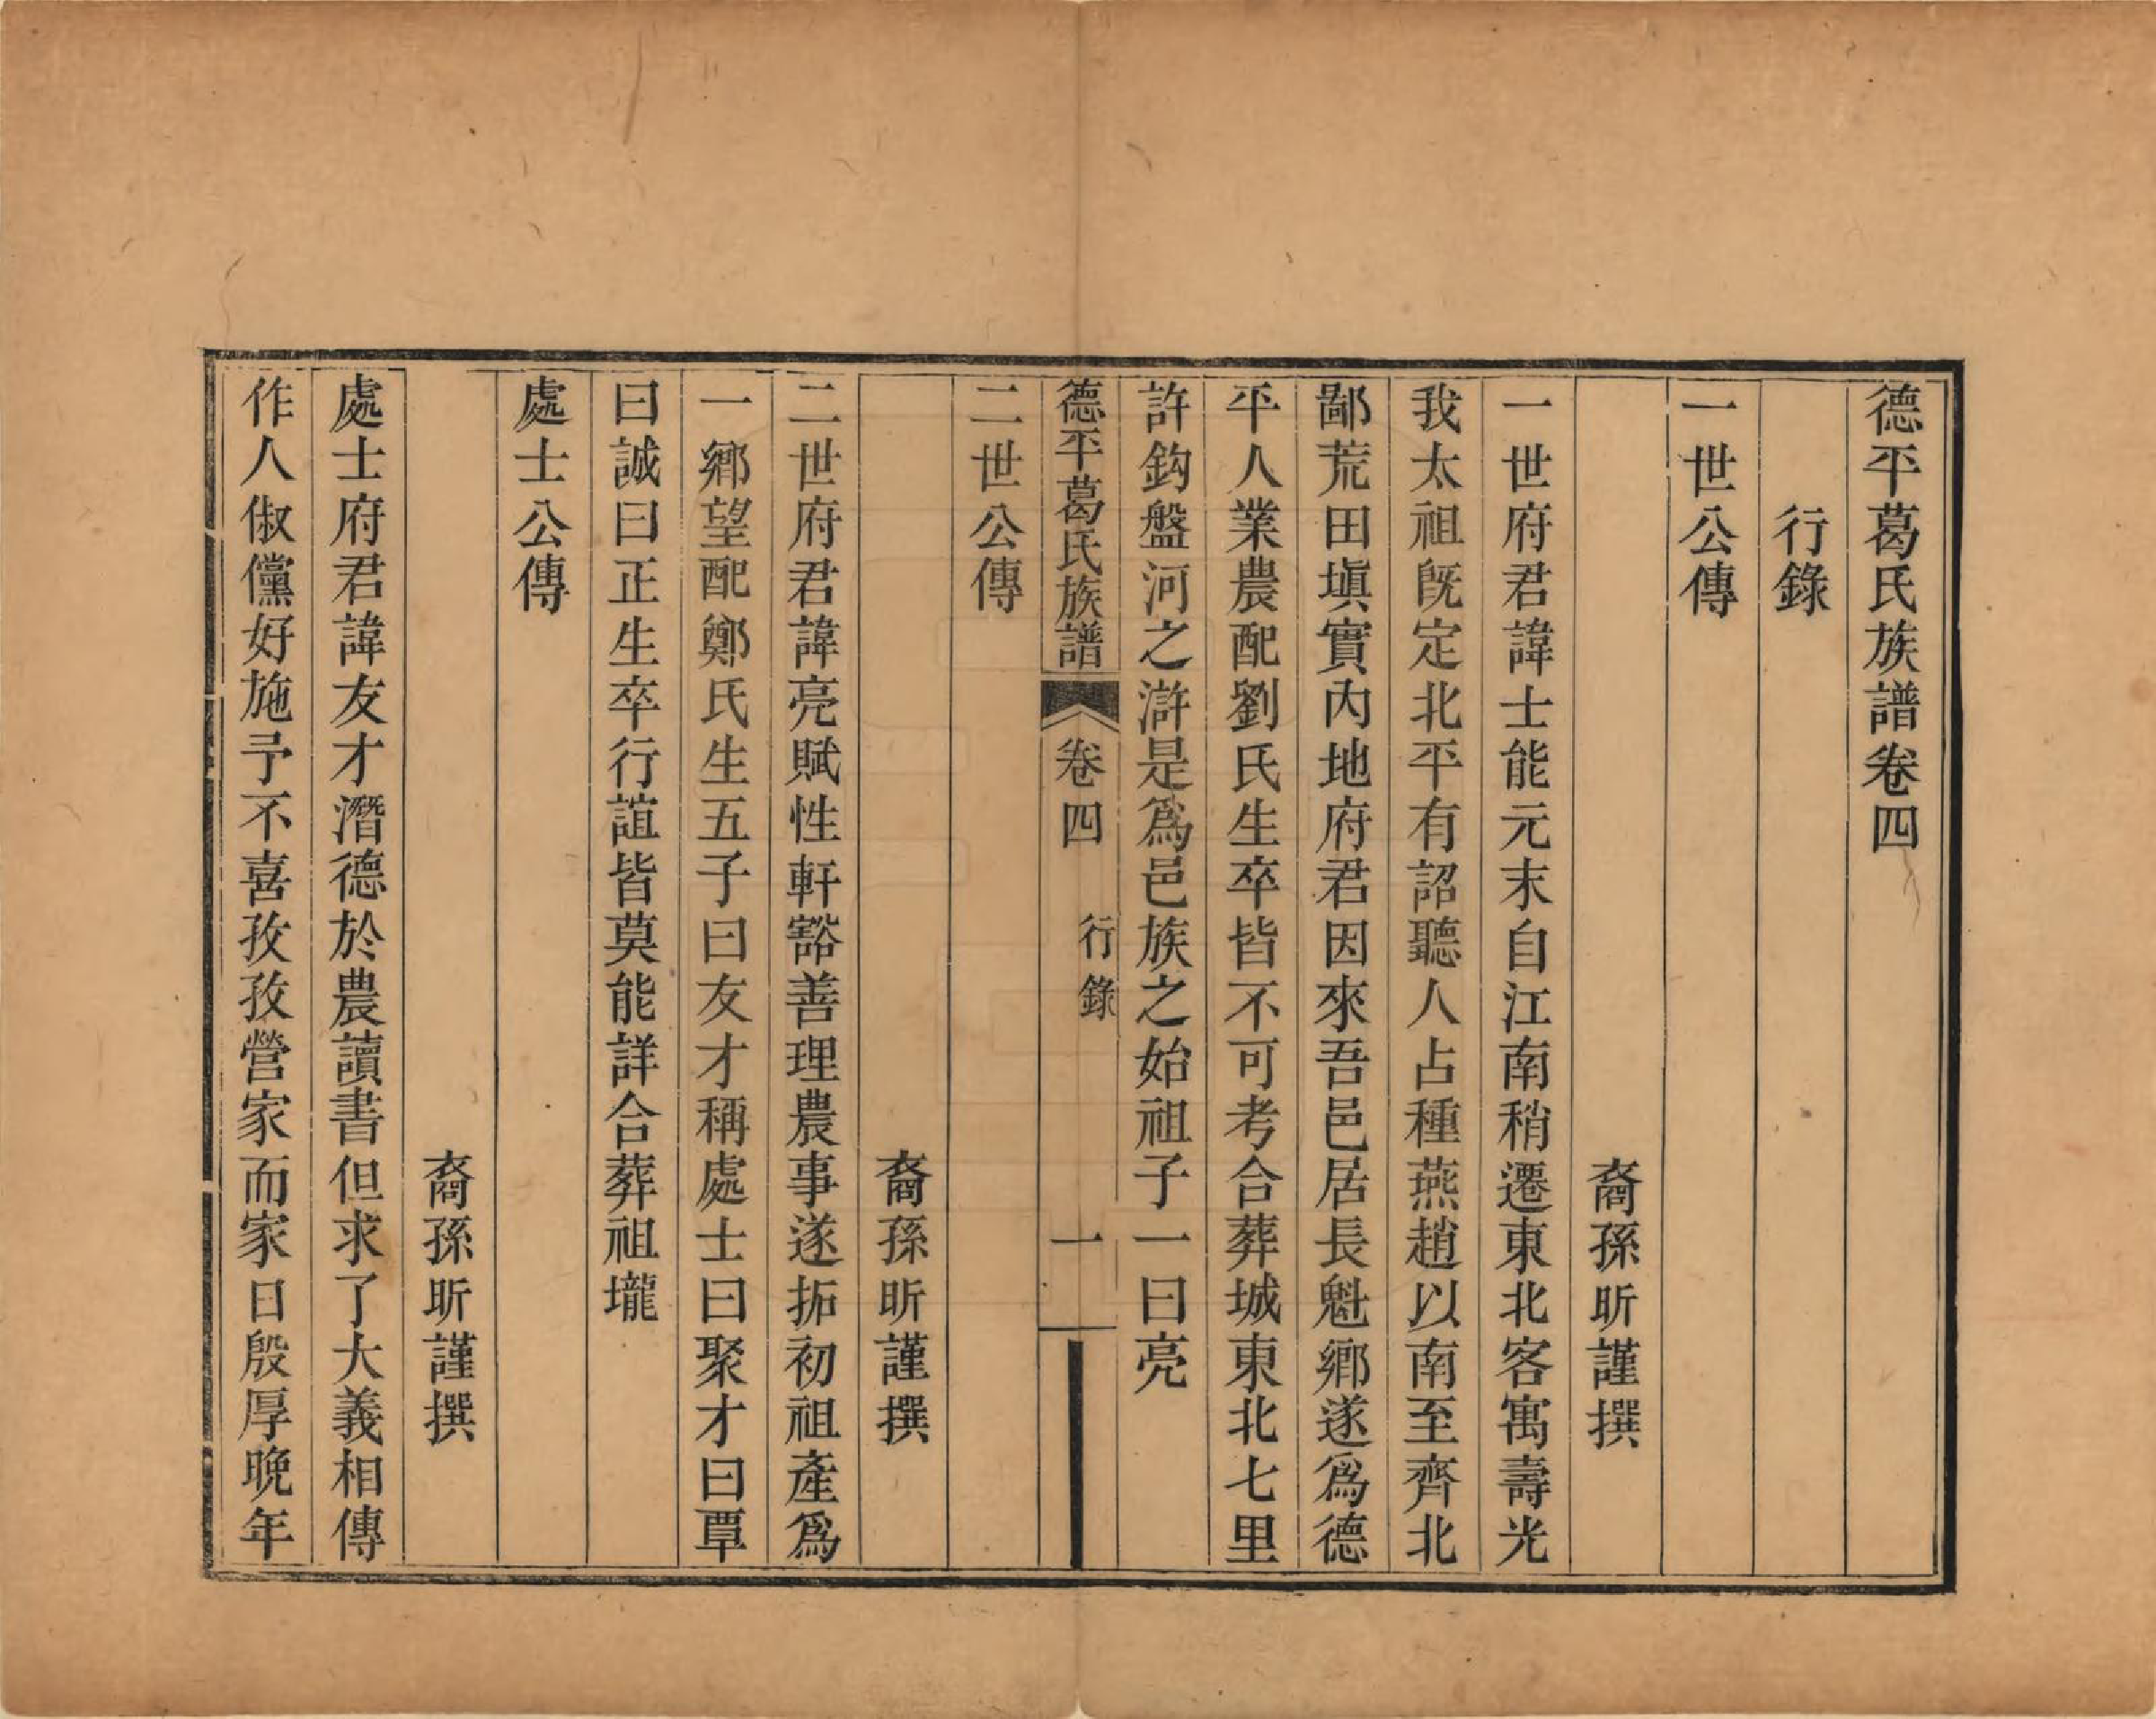 德平葛氏族譜卷四
行錄
一世公傳
裔孫昕謹撰
一世府君諱士能元末自江南稍遷東北客寓壽光
我太祖旣定北平有詔聽人占種燕趙以南至齊北
鄙荒田塡實內地府君因來吾邑居長魁鄉遂爲德
平人業農配劉氏生卒皆不可考合葬城東北七里
許鈎盤河之滸是爲邑族之始祖子一曰亮
德平葛氏族譜 卷四 行錄 一
二世公傳
裔孫昕謹撰
二世府君諱亮賦性軒豁善理農事遂拓初祖產爲
一鄉望配鄭氏生五子曰友才稱處士曰聚才曰覃
曰誠曰正生卒行誼皆莫能詳合葬祖壠
處士公傳
裔孫昕謹撰
處士府君諱友才潛德於農讀書但求了大義相傳
作人俶儻好施予不喜孜孜營家而家日殷厚晚年